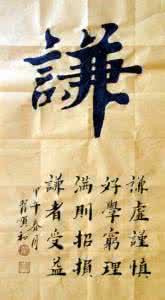 謙
謙虛謹慎
好學窮理
滿則招損
謙者受益
甲午冬月